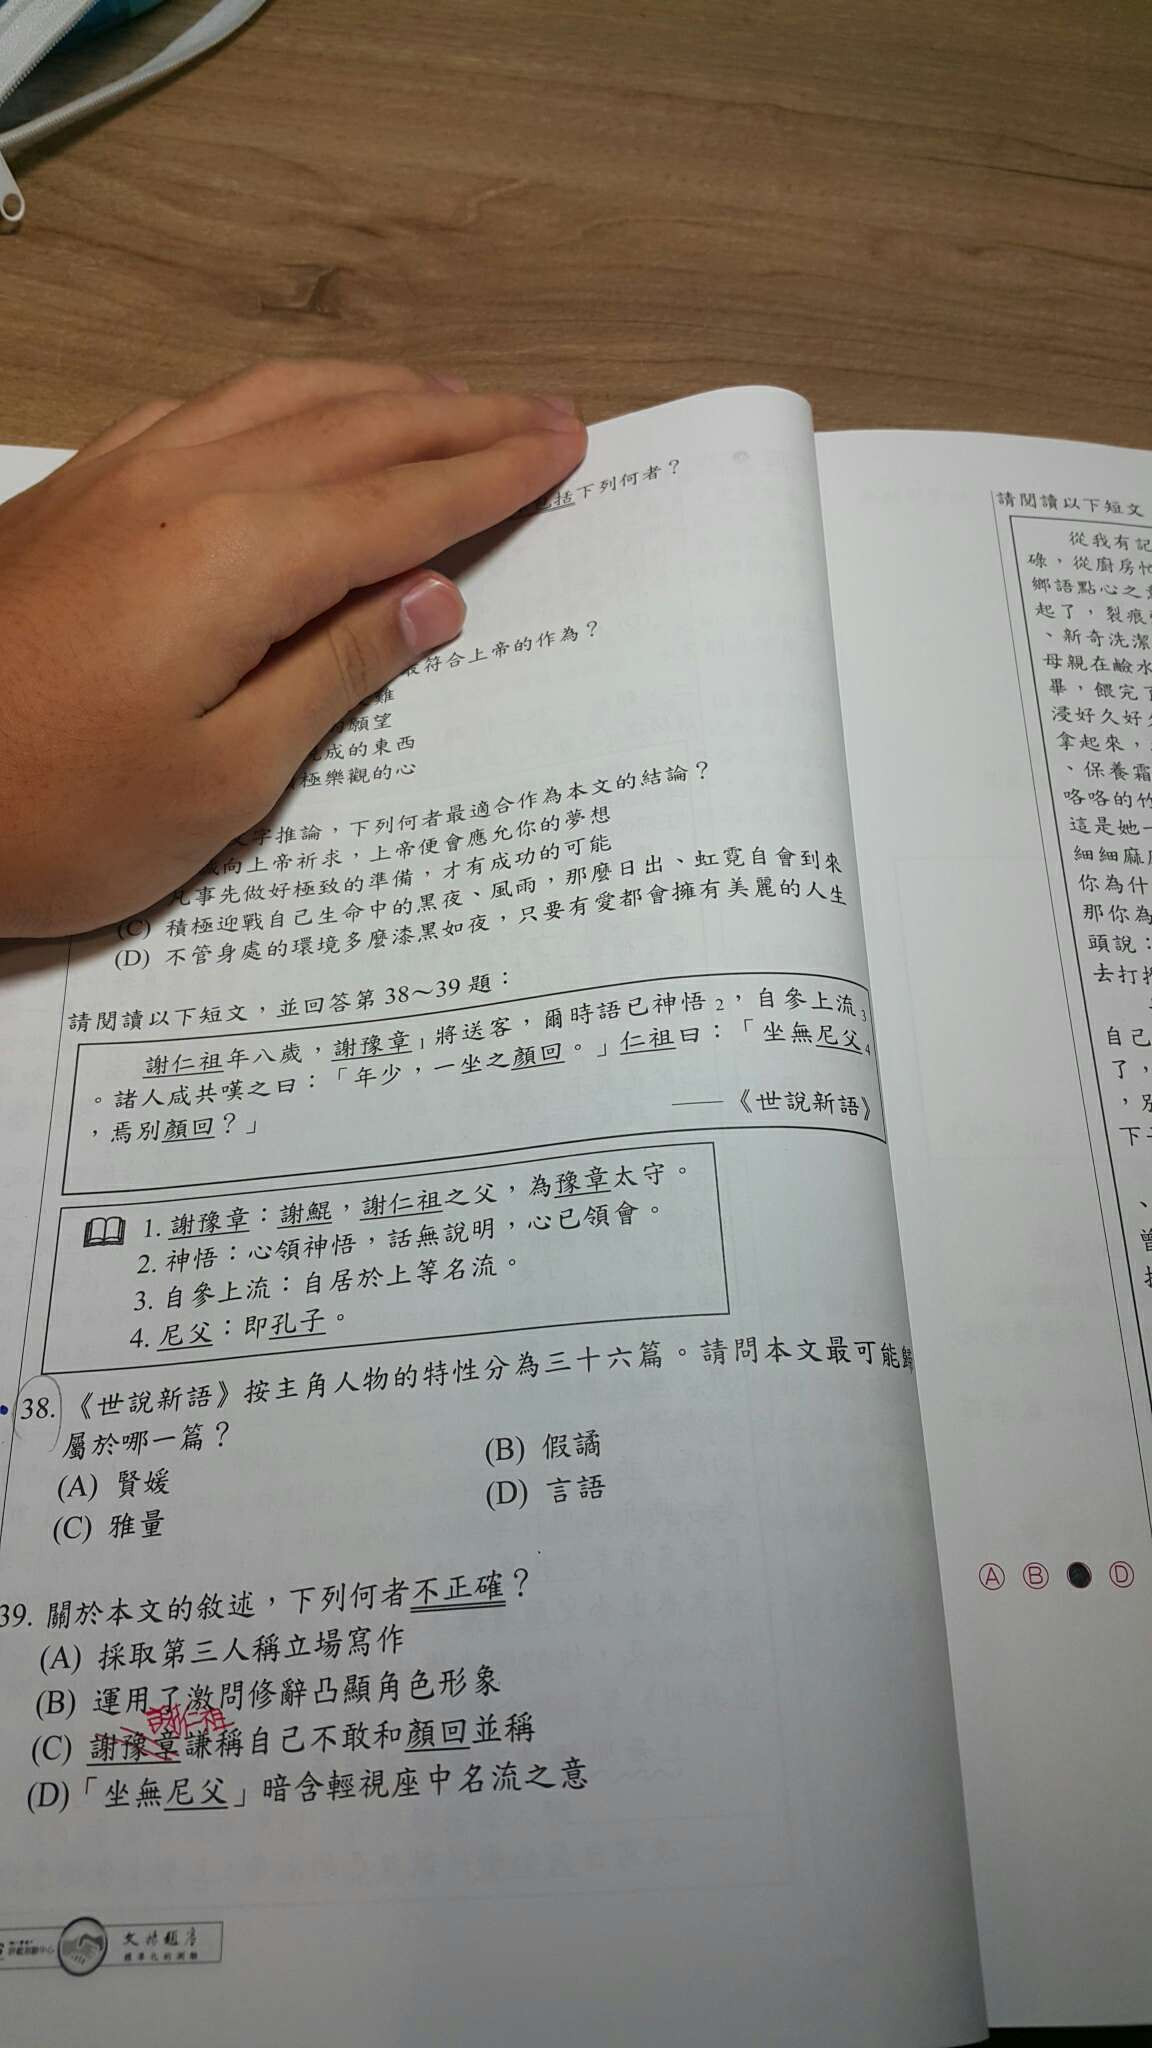 括下列何者？
符合上帝的作為？
難
願望
成的東西
極樂觀的心
字推論，下列何者最適合作為本文的結論？
向上帝祈求，上帝便會應允你的夢想
凡事先做好極致的準備，才有成功的可能
(C) 積極迎戰自己生命中的黑夜、風雨，那麼日出、虹霓自會到來
(D) 不管身處的環境多麼漆黑如夜，只要有愛都會擁有美麗的人生
請閱讀以下短文，並回答第 38～39 題：
謝仁祖年八歲，謝豫章1將送客，爾時語已神悟2，自參上流3
。諸人咸共嘆之曰：「年少，一坐之顏回。」仁祖曰：「坐無尼父4
，焉別顏回？」
——《世說新語》
1. 謝豫章：謝鯤，謝仁祖之父，為豫章太守。
2. 神悟：心領神悟，話無說明，心已領會。
3. 自參上流：自居於上等名流。
4. 尼父：即孔子。
38. 《世說新語》按主角人物的特性分為三十六篇。請問本文最可能歸
屬於哪一篇？
(A) 賢媛
(B) 假譎
(C) 雅量
(D) 言語
39. 關於本文的敘述，下列何者不正確？
(A) 採取第三人稱立場寫作
(B) 運用了激問修辭凸顯角色形象
謝仁祖
(C) 謝豫章謙稱自己不敢和顏回並稱
(D)「坐無尼父」暗含輕視座中名流之意
請閱讀以下短文
從我有記
碌，從廚房忙
鄉語點心之
起了，裂痕
、新奇洗潔
母親在鹼水
畢，餵完了
浸好久好久
拿起來，
、保養霜
咯咯的竹
這是她一
細細麻
你為什
那你為
頭說：
去打
自己
了，
，別
下
、
曾
A B D